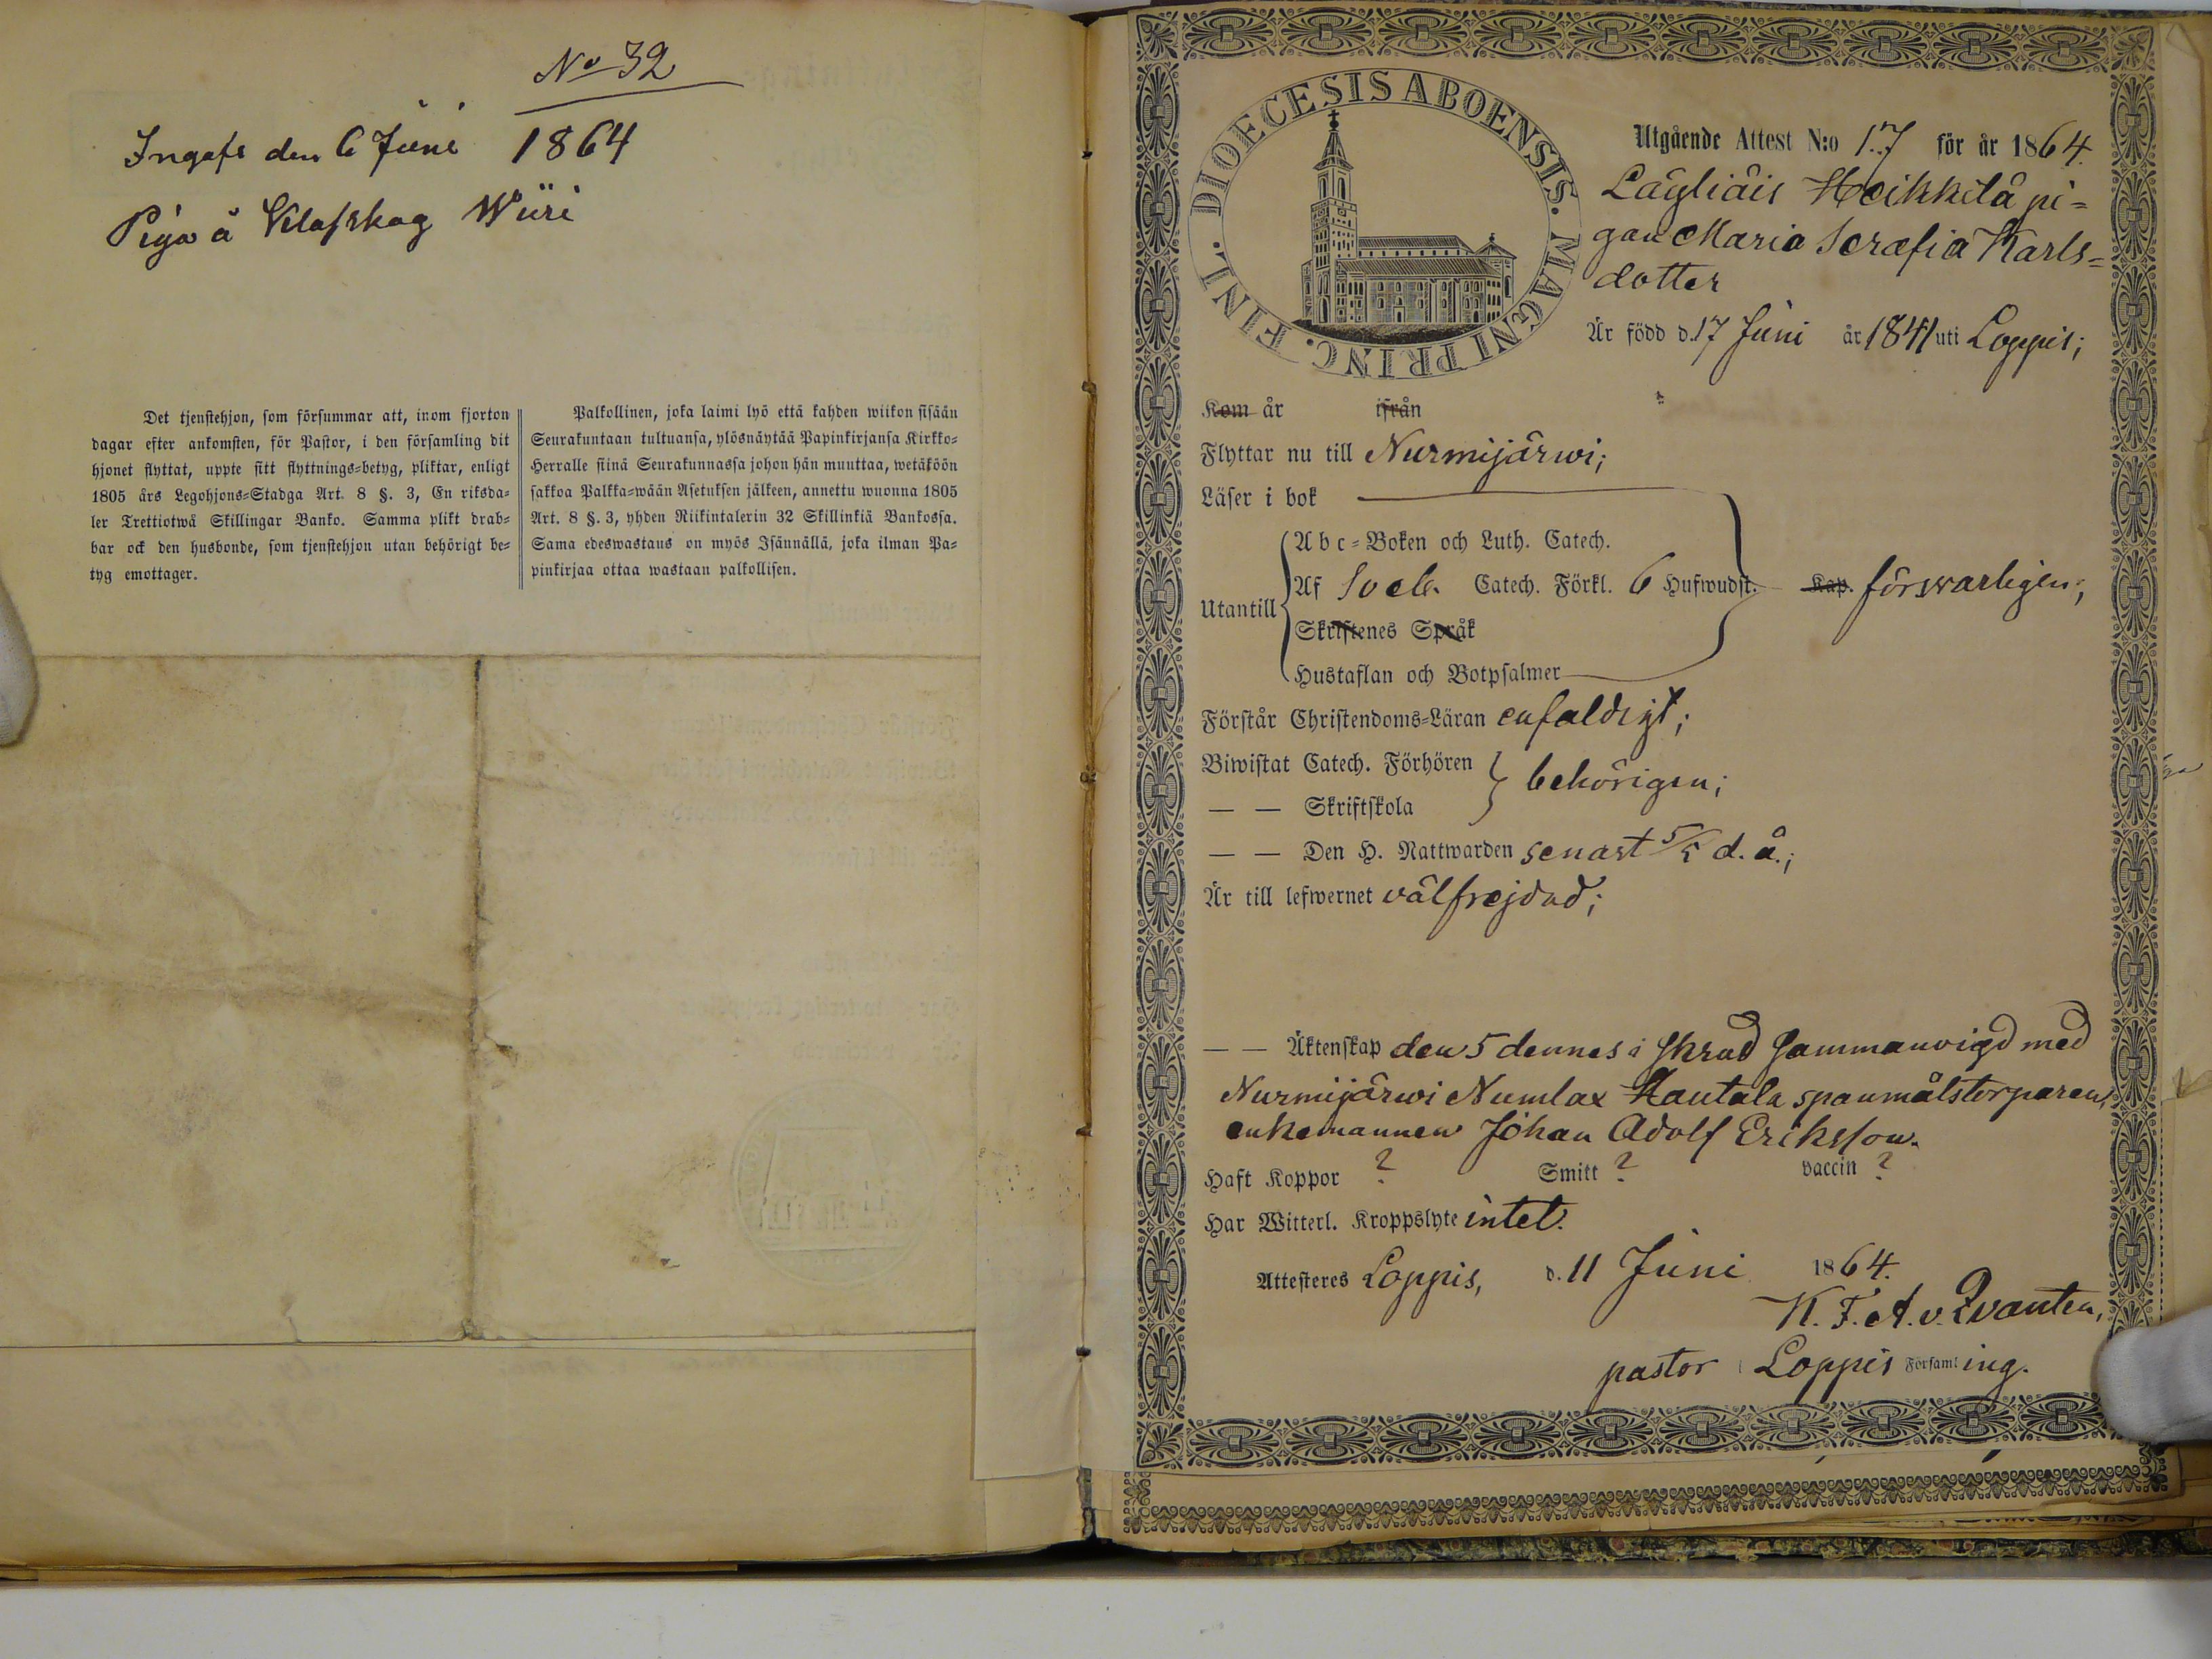 No 32
Ingafs den 6 Juni 1864
Piga å Klafskog Wiiri
Det tjenstehjon, som försummar att, inom fjorton
dagar efter ankomsten, för Pastor, i den församling dit
hjonet flyttat, uppte sitt flyttnings=betyg, pliktar, enligt
1805 års Legohjons=Stadga Art. 8 §. 3, En riksda=
ler Trettiotwå Skillingar Banko. Samma plikt drab=
bar ock den husbonde, som tjenstehjon utan behörigt be=
tyg emottager.
Palkollinen, joka laimi lyö että kahden wiikon sisään
Seurakuntaan tultuansa, ylösnäytää Papinkirjansa Kirkko=
Herralle siinä Seurakunnassa johon hän muuttaa, wetäköön
sakkoa Palkka=wään Asetuksen jälkeen, annettu wuonna 1805
Art. 8 §. 3, yhden Riikintalerin 32 Skillinkiä Bankossa.
Sama edeswastaus on myös Isännällä, joka ilman Pa=
pinkirjaa ottaa wastaan palkollisen.
DIOECESIS ABOENSIS. MAGNI PRINC. FINL.
Utgående Attest N:o 17 för år 1864.
Läyliäis Heikkilä pi=
gan Maria Serafia Karls=
dotter
Är född d. 17 Juni år 1841 uti Loppis;
Kom år ifrån
Flyttar nu till Nurmijärwi;
Läser i bok
Abc=Boken och Luth. Catech.
Utantill Af Sveb. Catech. Förkl. 6 Hufwudst. Kap. försvarligen;
Skriftenes Språk
Hustaflan och Botpsalmer
Förstår Christendoms=Läran enfaldigt;
Biwistat Catech. Förhören
behörigen;
— — Skriftskola
— — Den H. Nattwarden senast 5/5 d. å.;
Är till lefwernet välfrejdad;
— — Äktenskap den 5 dennes i skrud sammanvigd med
Nurmijärwi Numlax Hautala spanmålstorparen,
enkemannen Johan Adolf Eriksson.
Haft Koppor ? Smitt ? vaccin ?
Har Witterl. Kroppslyte intet.
Attesteres Loppis, d. 11 Juni 1864.
K. F. A. v. Qvanten,
pastor i Loppis Församling.